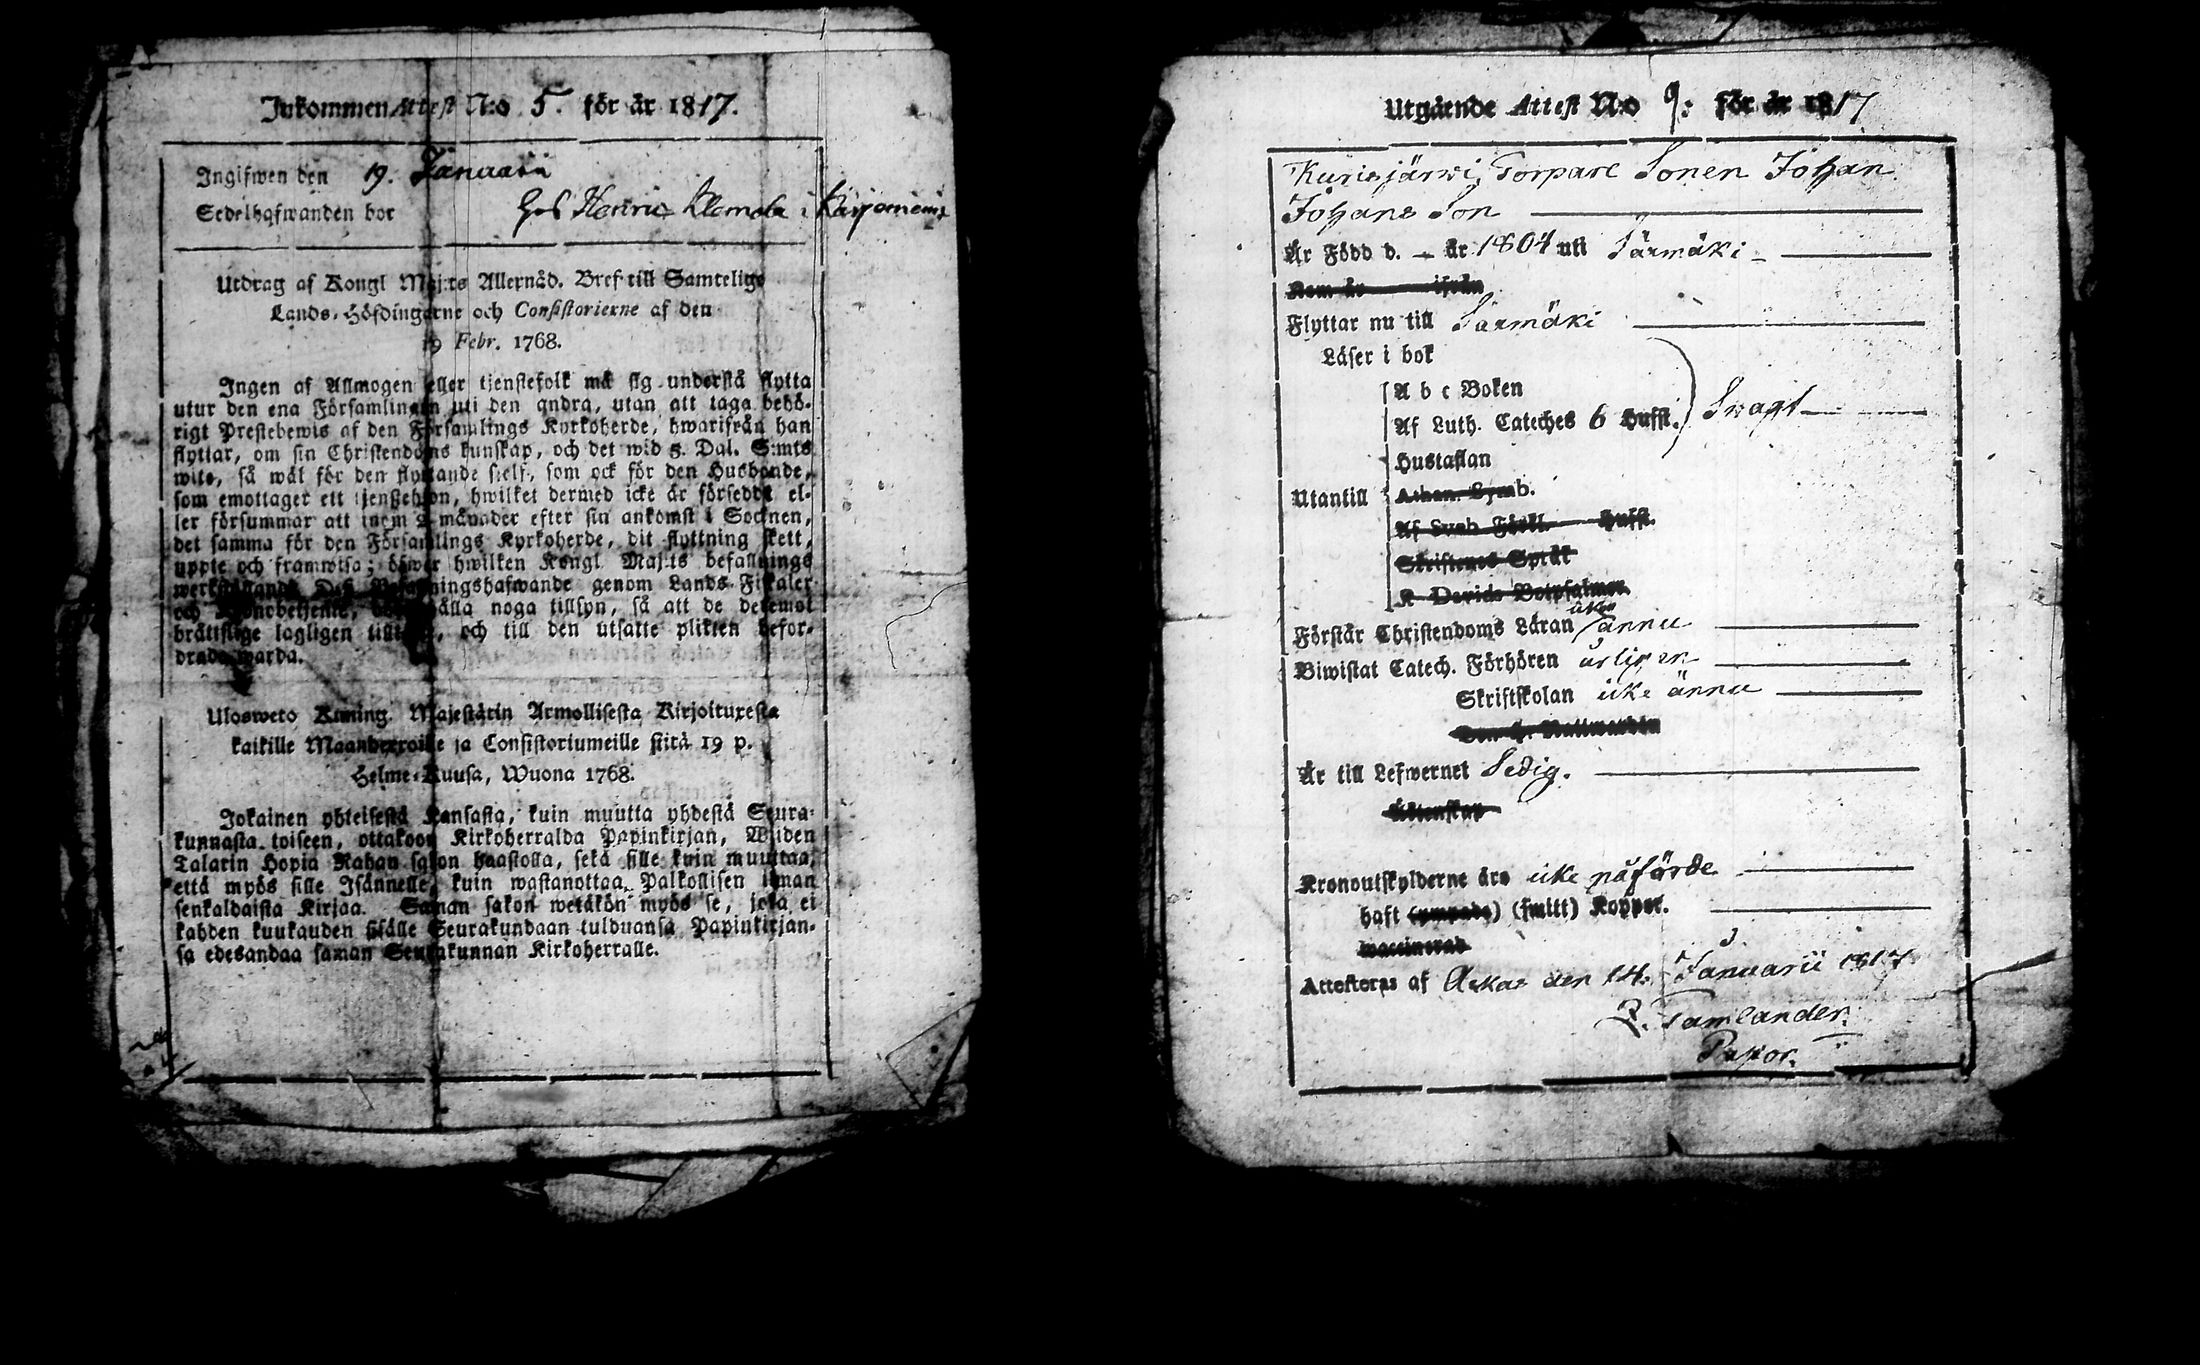 Inkommen Attest N:o 5. för år 1817.
Ingifwen den 19. Januarii
Sedelhafwanden bor hos Henric Klemola i Karjoniemi
Utdrag af Kongl Maj:ts Allernåd. Bref till Samtelige
Lands-Höfdingarne och Consistorierne af den
19 Febr. 1768.
Ingen af Allmogen eller tjenstefolk må sig understå flytta
utur den ena Församlingen uti den andra, utan att taga behö-
rigt Prestebewis af den Församlings Kyrkoherde, hwarifrån han
flyttar, om sin Christendoms kunskap, och det wid 5. Dal. S:mts
wite, så wäl för den flyttande sielf, som ock för den Husbonde,
som emottager ett tjenstehion, hwilket dermed icke är försedt el-
ler försummar att inom 2 månader efter sin ankomst i Socknen,
det samma för den Församlings Kyrkoherde, dit flyttning skett,
uppte och framwisa; öfwer hwilken Kongl Maj:ts befallnings
werkställande Des Befallningshafwande genom Lands-Fiskaler
och Kronobetjente, hålla noga tillsyn, så att de deremot
bråttslige lagligen och till den utsatte plikten befor-
drade warda.
Ulosweto Kuning. Majestätin Armollisesta Kirjoituxesta
kaikille Maanherroille ja Consistoriumeille siitä 19 p.
Helme-Kuusa, Wuona 1768.
Jokainen yhteisestä Kansasta, kuin muutta yhdestä Seura-
kunnasta toiseen, ottakoon Kirkoherralda Papinkirjan, Wiiden
Talarin Hopia Rahan sakon haastolla, sekä sille kuin muuttaa,
että myös sille Isännelle, kuin wastanottaa Palkollisen ilman
senkaldaista Kirjaa. Saman sakon wetäkön myös se, joka ei
kahden kuukauden sisälle Seurakundaan tulduansa Papinkirjan-
sa edesandaa saman Seurakunnan Kirkoherralle.
Utgående Attest N:o 9: för år 1817
Kurisjärwi, Torpare Sonen Johan
Johans Son
Är Född d. – år 1804 uti Särmäki –
Kom år ifrån
Flyttar nu till Särmäki
Läser i bok
A b c Boken
Af Luth. Cateches 6 Hufst. Swagt
Hustaflan
Utantill Athan. Symb.
Af Symb. Förkl. Hufst.
Skriftenes Språk
K Davids Botpsalmer
Förstår Christendoms Läran icke ännu
Biwistat Catech. Förhören årligen
Skriftskolan icke ännu
Den H. Nattwarden
Är till Lefwernet Sedig.
Äktenskap
Kronoutskylderne äro icke påförde
haft (ympade) (smitt) Koppor.
waccinerad
Attesteras af Askas den 14. Januarii 1817
Tamlander.
Pastor.